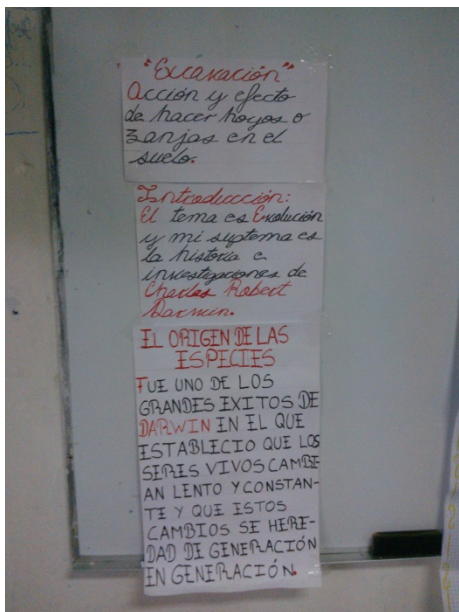 "Excavación"
Acción y efecto
de hacer hoyos o
zanjas en el
suelo.
Introducción:
El tema es Evolución
y mi suptema es
la historia e
investigaciones de
Charles Robert
Darwin.
EL ORIGEN DE LAS
ESPECIES
FUE UNO DE LOS
GRANDES EXITOS DE
DARWIN EN EL QUE
ESTABLECIO QUE LOS
SERES VIVOS CAMBI
AN LENTO Y CONSTAN-
TE Y QUE ESTOS
CAMBIOS SE HERE-
DAD DE GENERACIÓN
EN GENERACIÓN.